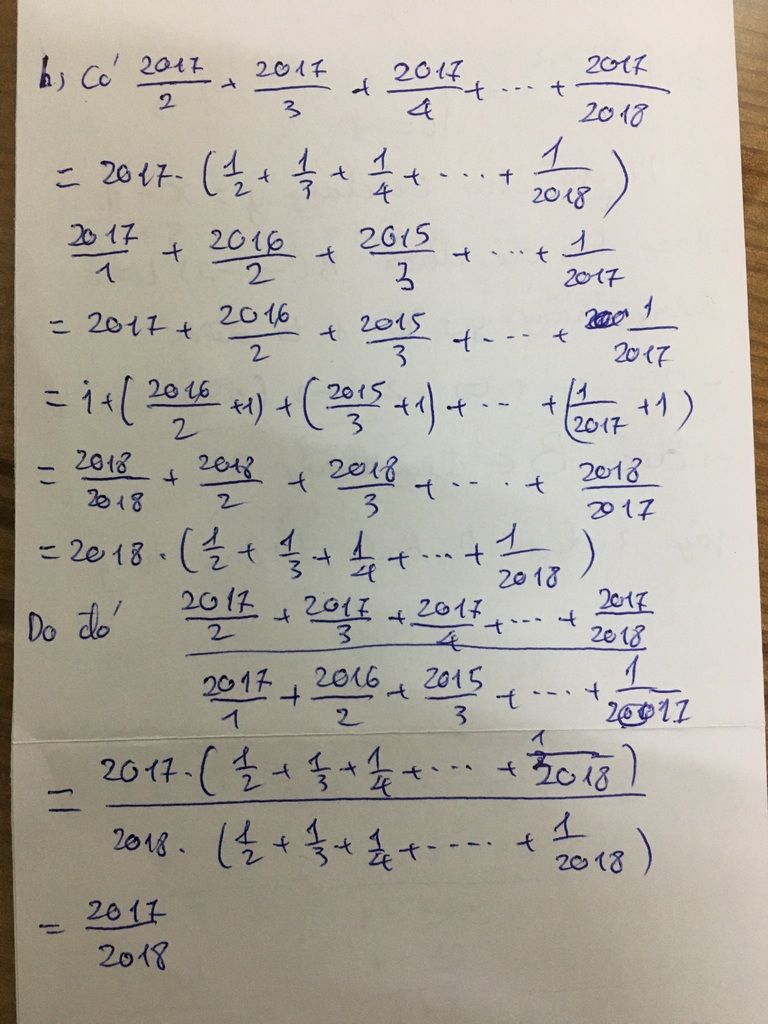 b, Có 2017/2 + 2017/3 + 2017/4 + ... + 2017/2018
= 2017. (1/2 + 1/3 + 1/4 + ... + 1/2018)
2017/1 + 2016/2 + 2015/3 + ... + 1/2017
= 2017 + 2016/2 + 2015/3 + ... + 1/2017
= 1 + (2016/2 + 1) + (2015/3 + 1) + ... + (1/2017 + 1)
= 2018/2018 + 2018/2 + 2018/3 + ... + 2018/2017
= 2018 . (1/2 + 1/3 + 1/4 + ... + 1/2018)
Do đó 2017/2 + 2017/3 + 2017/4 + ... + 2017/2018
2017/1 + 2016/2 + 2015/3 + ... + 1/2017
= 2017. (1/2 + 1/3 + 1/4 + ... + 1/2018)
2018. (1/2 + 1/3 + 1/4 + .... + 1/2018)
= 2017/2018